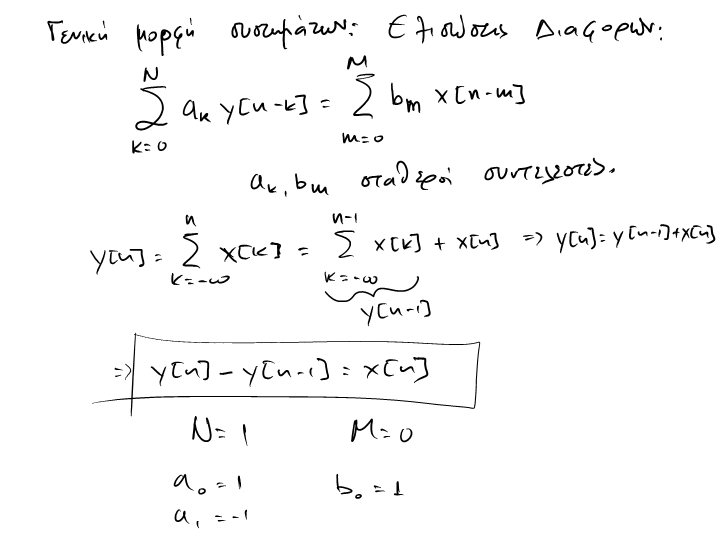 Γενική μορφή συστημάτων: Εξισώσεις Διαφορών:
N∑k=0 aₖ y[n-k] = M∑m=0 bₘ x[n-m]
aₖ, bₘ σταθεροί συντελεστές.
y[n] = n∑k=-∞ x[k] = n-1∑k=-∞ x[k] + x[n] => y[n] = y[n-1]+x[n]
y[n-1]
=> y[n] - y[n-1] = x[n]
N=1 M=0
a₀ = 1 b₀ = 1
a₁ = -1